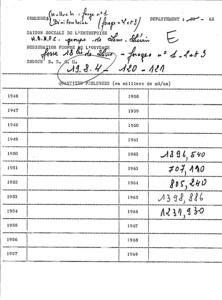 COMMUNES Mallach : forage n° 1
Dénifontaine (forages 2 et 3)
DEPARTEMENT : - 62
RAISON SOCIALE DE L'ENTREPRISE
H.B.N.P.C. groupe de Lens-Liévin E
DESIGNATION PROPRE DE L'OUVRAGE
fosse 13 de Lens - forages n° 1 - 2 et 3
INDICE B. R. G. M.
19.8.4 - 120 - 121
QUANTITES PRELEVEES (en milliers de m3/an)
1946 1958
1948 1959
1949 1960
1950 1962 1396,540
1951 1963 707,190
1952 1964 805,240
1953 1965 1398,886
1954 1966 1239,930
1955 1967
1956 1968
1957 1969